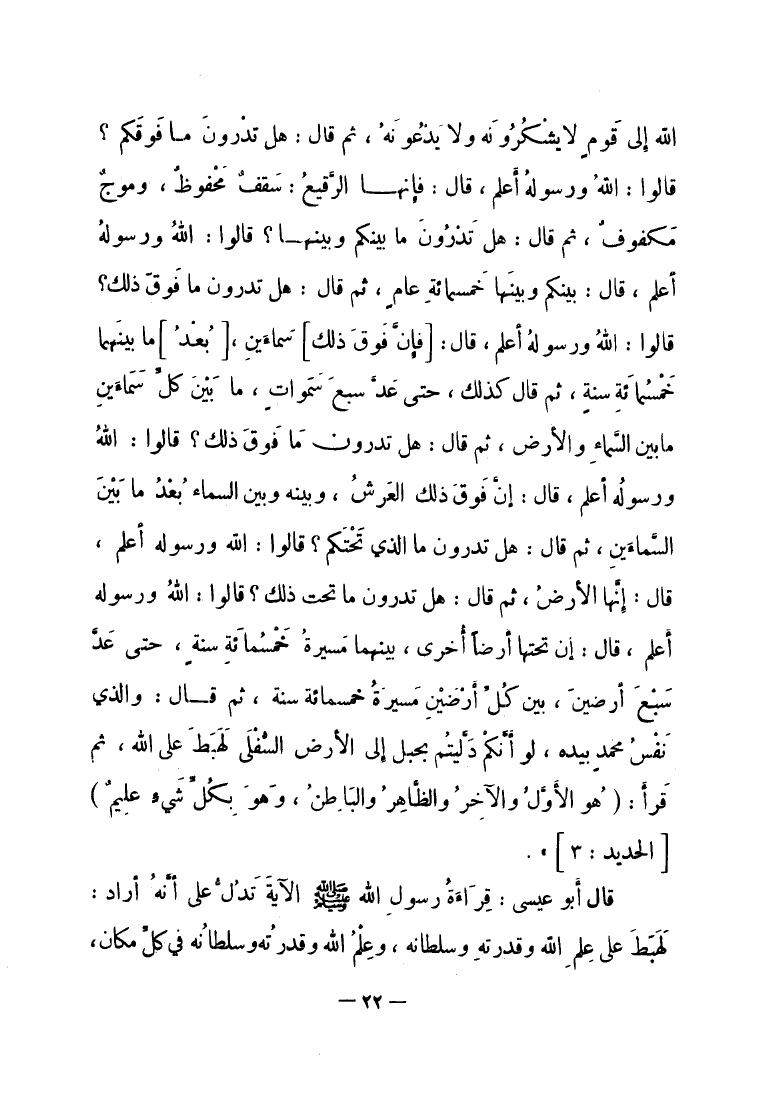 الله إلى قومٍ لا يشْكُرُونَه ولا يَدْعُونَهُ ، ثم قال : هل تدْرونَ مـا فَوقَكم ؟
قالوا : اللهُ ورسولُهُ أعلم ، قال : فإنهــا الرَّقيعُ : سَقفٌ مَحْفوظٌ ، وموجٌ
مَكفوفٌ ، ثم قال : هل تَدْرُونَ ما بينكم وبينهـا ؟ قالوا : اللهُ ورسولهُ
أعلم ، قال : بينكم وبينَها خَمسمائةِ عامٍ ، ثم قال : هل تدرون ما فَوقَ ذلك؟
قالوا : اللهُ ورسولهُ أعلم ، قال : [فإنَّ فَوقَ ذلك] سَماءَينِ ،[ بُعدُ ] ما بينَهما
خَمْسُمائَةِ سنةٍ ، ثم قال كذلك ، حتى عَدَّ سبعَ سَمَواتٍ ، ما بَيْنَ كلِّ سَمَاءَينِ
مابين السَّماءِ والأرض ، ثم قال : هل تدرون مَا فَوقَ ذلك ؟ قالوا : اللهُ
ورسولُه أعلم ، قال : إنَّ فَوقَ ذلك العَرشُ ، وبينه وبين السماء بُعْدُ ما بَيْنَ
السَّماءَينِ ، ثم قال : هل تدرون ما الذي تَحْتَكم ؟ قالوا : الله ورسوله أعلم ،
قال : إنَّها الأرضُ ، ثم قال : هل تدرون ما تحت ذلك ؟ قالوا : اللهُ ورسوله
أعلم ، قال : إن تحتها أرضاً أُخرى ، بينهما مَسيرةُ خَمْسُمائَةِ سنةٍ ، حتى عَدَّ
سَبْعَ أرضينَ ، بين كُلِّ أرْضَيْنِ مَسيرَةُ خمسمائة سنة ، ثم قــال : والذي
نَفْسُ محمدٍ بيده ، لو أنَّكمْ دَلَّيتُم بحبل إلى الأرض السُّفْلَى لَهَبَطَ على الله ، ثم
قَرأ : ( هُو الأوَّلُ والآخِرُ والظَّاهِرُ والبَاطِنُ ، وَهوَ بِكُلِّ شَيءٍ عليمٌ )
[ الحديد : ٣ ] » .
قال أبو عيسى : قِرَاءَةُ رسولِ الله ﷺ الآيةَ تَدُلُّ على أنَّهُ أراد :
لَهَبَطَ على عِلمِ الله وقدرتهِ وسلطانه ، وعِلْمُ الله وقدرتُه وسلطانُه في كلِّ مكان،
— ٢٢ —